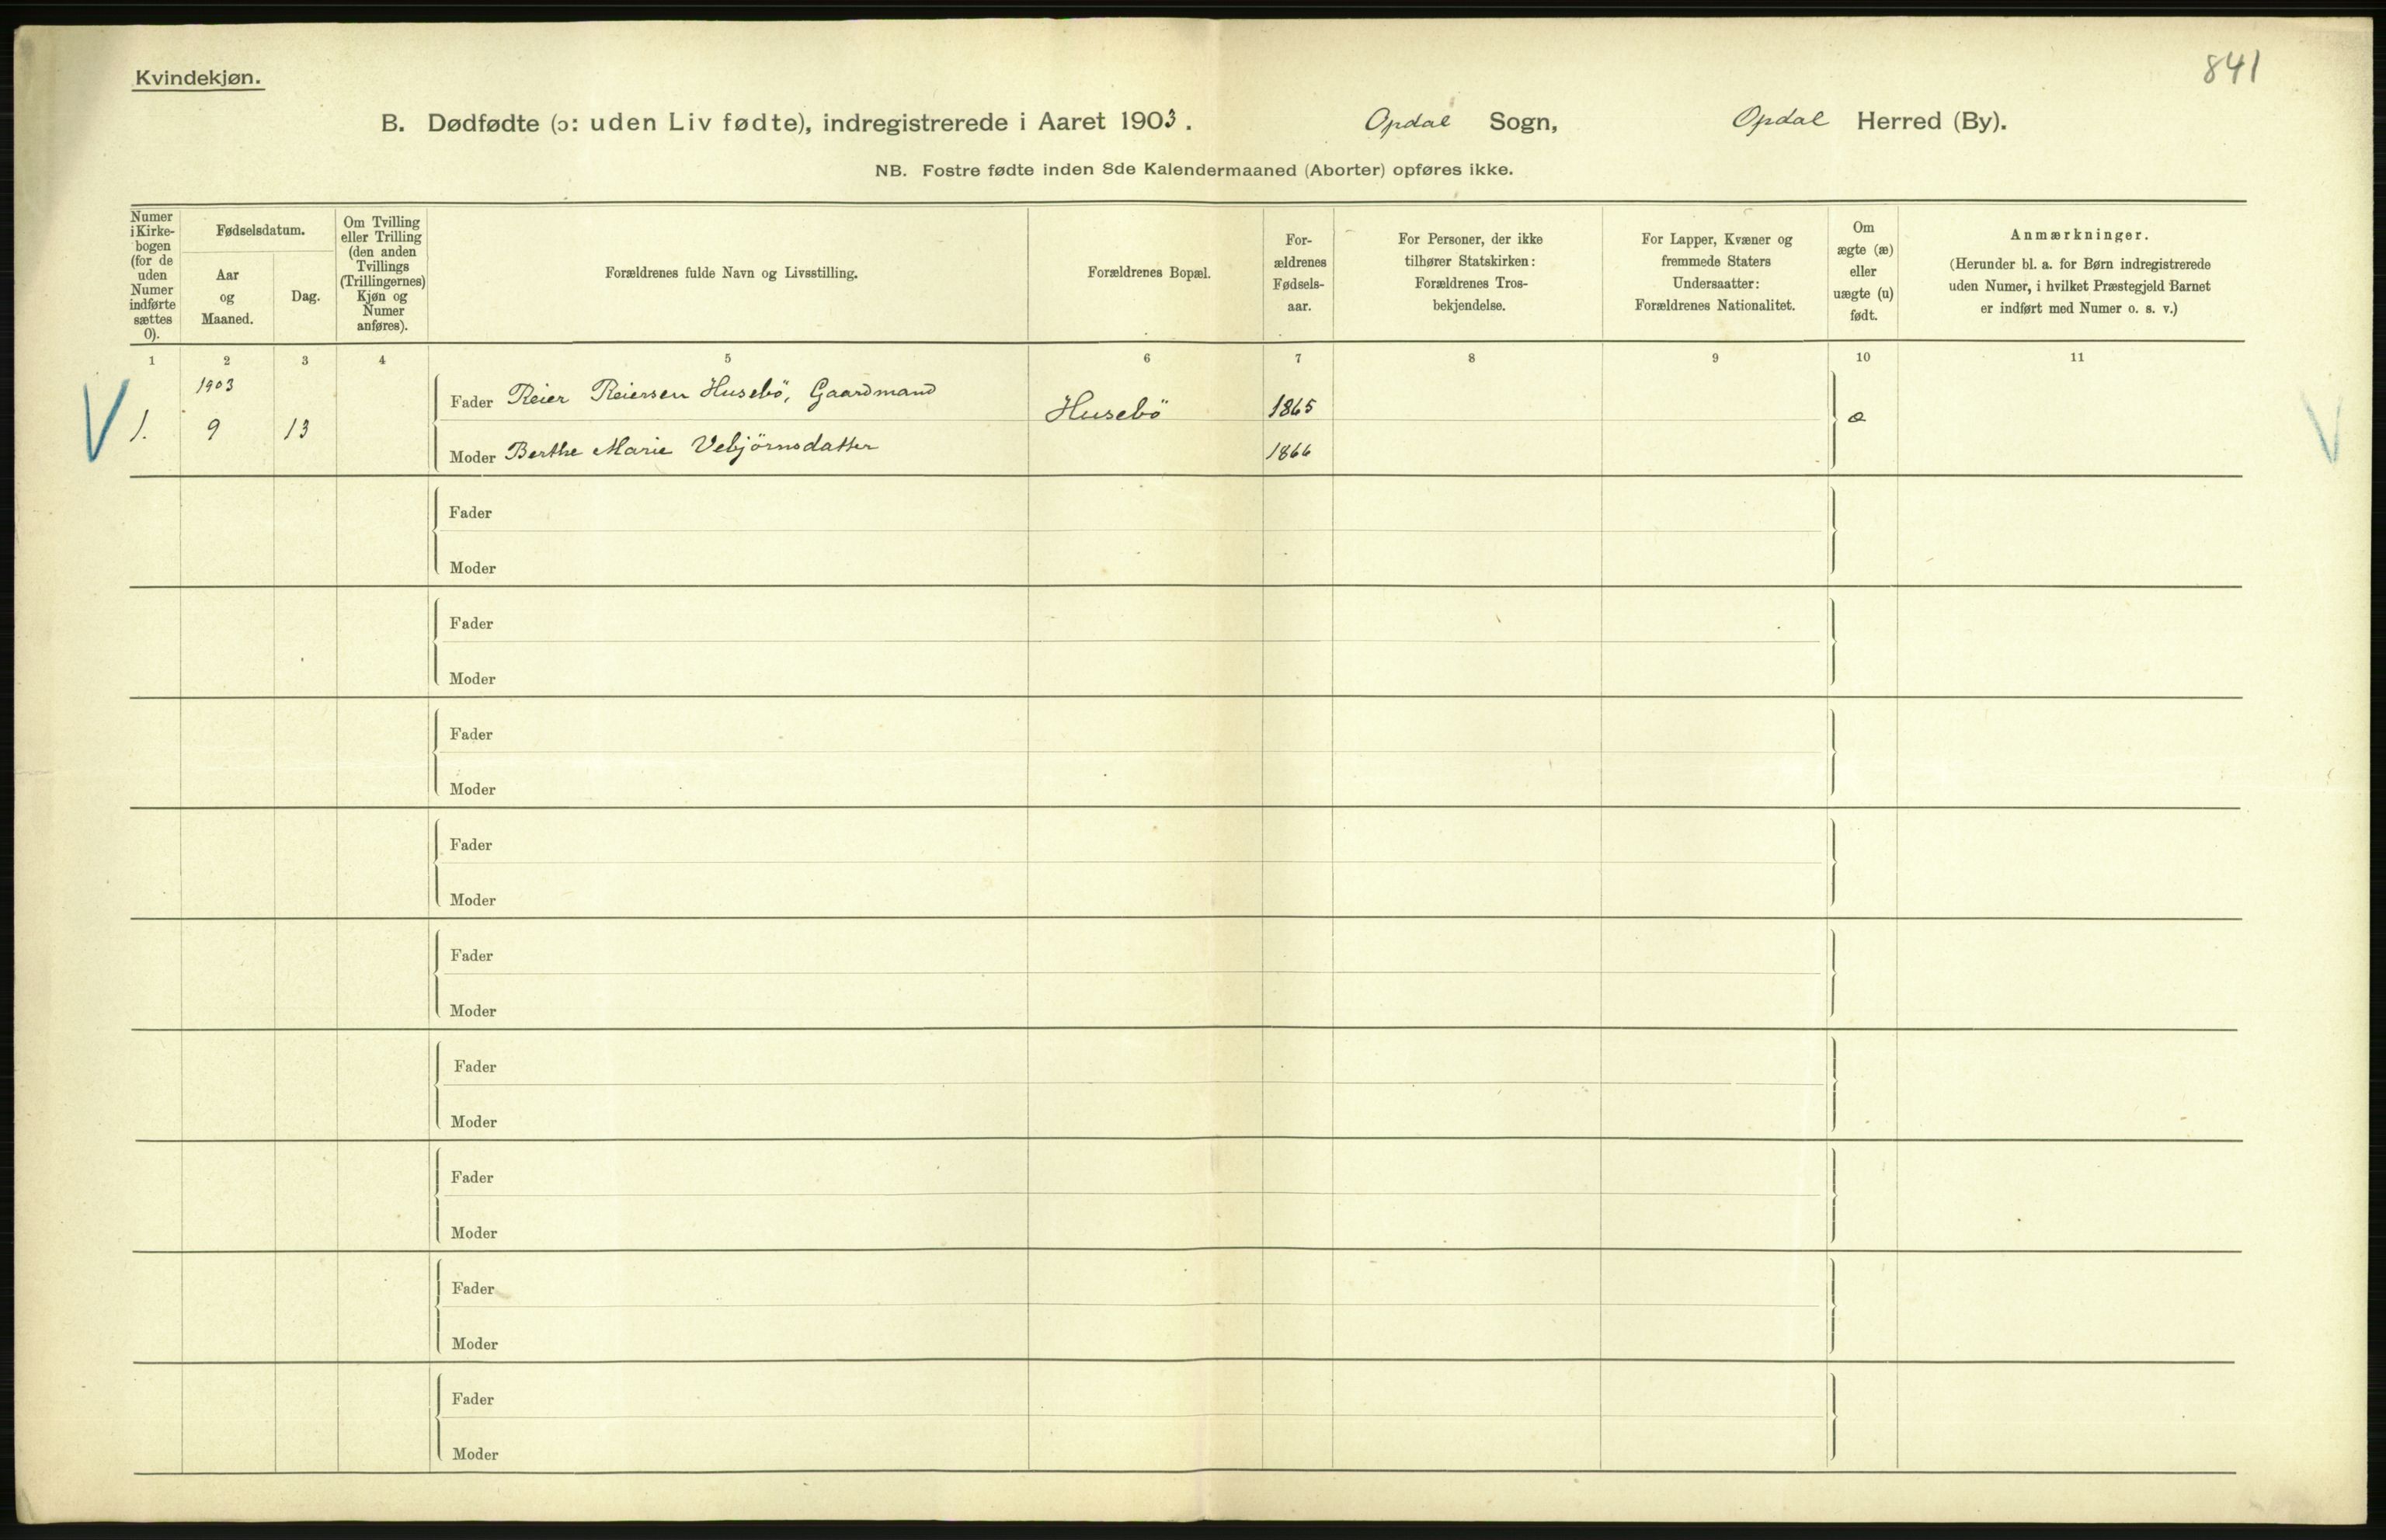 841
Kvindekjøn.
B. Dødfødte (ɔ: uden Liv fødte), indregistrerede i Aaret 1903. Opdal Sogn, Opdal Herred (By).
NB. Fostre fødte inden 8de Kalendermaaned (Aborter) opføres ikke.
Numer
i Kirke-
bogen
(for de
uden
Numer
indførte
sættes
0).
Fødselsdatum.
Aar
og
Maaned.
Dag.
Om Tvilling
eller Trilling
(den anden
Tvillings
(Trillingernes)
Kjøn og
Numer
anføres).
Forældrenes fulde Navn og Livsstilling.
Forældrenes Bopæl.
For-
ældrenes
Fødsels-
aar.
For Personer, der ikke
tilhører Statskirken:
Forældrenes Tros-
bekjendelse.
For Lapper, Kvæner og
fremmede Staters
Undersaatter:
Forældrenes Nationalitet.
Om
ægte (æ)
eller
uægte (u)
født.
Anmærkninger.
(Herunder bl. a. for Børn indregistrerede
uden Numer, i hvilket Præstegjeld Barnet
er indført med Numer o. s. v.)
1 2 3 4 5 6 7 8 9 10 11
1903
1. 9 13
Fader Reier Reiersen Husebö, Gaardmand Husebö 1865 æ
Moder Berthe Marie Vebjörnsdatter 1866
Fader
Moder
Fader
Moder
Fader
Moder
Fader
Moder
Fader
Moder
Fader
Moder
Fader
Moder
Fader
Moder
Fader
Moder